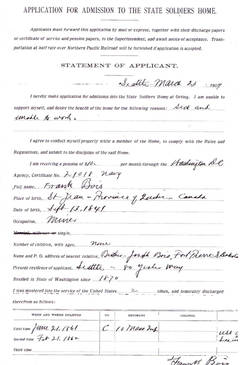 APPLICATION FOR ADMISSION TO THE STATE SOLDIERS HOME.
Applicants must forward this application by mail or express, together with their discharge papers
or certificate of service and pension papers, to the Superintendent, and await notice of acceptance. Trans-
portation at half rate over Northern Pacific Railroad will be furnished if application is accepted.
STATEMENT OF APPLICANT.
Seattle March 21
I hereby make application for admission into the State Soldiers Home at Orting. I am unable to
support myself, and desire the benefit of the home for the following reasons: and
unable to work.
I agree to conduct myself properly while a member of the Home, to comply with the Rules and
Regulations, and submit to the discipline of the said Home.
I am receiving a pension of per month through the Washington DC
Agency, Certificate No. Navy
Full name, Frank Bois
Place of birth, St. Jean - Province of Quebec - Canada
Date of birth, Sept. 12, 1841
Occupation, Miner
single.
Number of children, with ages, None
Name and P. O. address of nearest relative, Brother Joseph Bois, Fort Pierre
Present residence of applicant, Seattle, Yesler Way
Resided in State of Washington since 1890
I was mustered into the service of the United States 2 times, and honorably discharged
therefrom as follows:
WHEN AND WHERE ENLISTED RANK COMPANY REGIMENT
First time June 21, 1861 C 10 Mass
Second time Feb 21,
Third time
Frank Bois